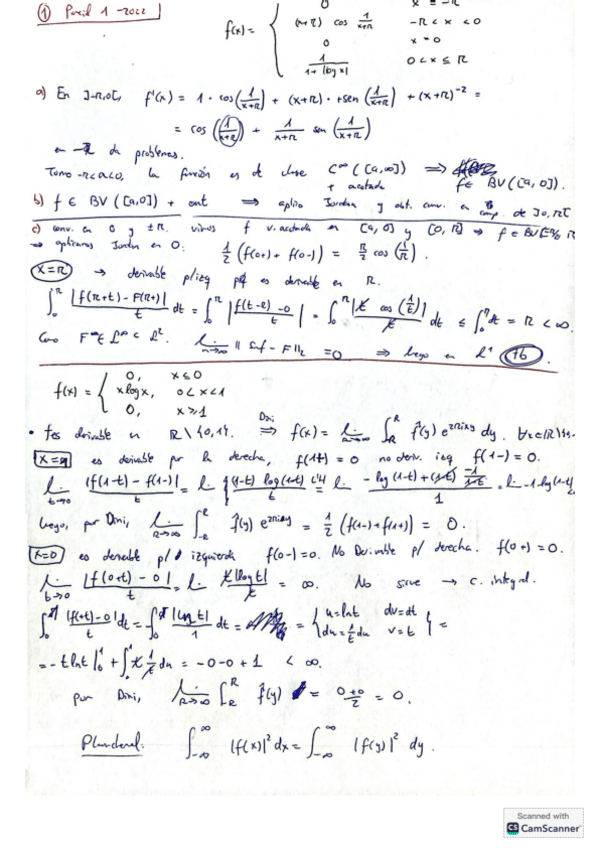 ① Parcial 1 - 2022
f(x) = { 0 x = -π
(x+π) cos 1/(x+π) -π < x < 0
0 x = 0
1/(1+|log x|) 0 < x ≤ π
a) En ]-π,0[, f'(x) = 1 · cos(1/(x+π)) + (x+π) · +sen(1/(x+π)) + (x+π)^-2 =
= cos(1/(x+π)) + 1/(x+π) sen(1/(x+π))
en -π da problemas.
Tomo -π<a<0, la función es de clase C^∞([a,∞]) ⟹ f ∈ BV([a,0]).
+ acotada
b) f ∈ BV([a,0]) + cont ⟹ aplico Jordan y obt. conv. en comp. de ]0,π[
c) conv. en 0 y ±π. vimos f v. acotada en [a,0] y [0,π] ⟹ f ∈ BV
⟹ aplicamos Jordan en 0: 1/2 (f(0+) + f(0-)) = π/2 cos(1/π).
x=π → derivable p/izq es derivable en π.
∫_0^π |f(π+t) - f(π+)|/t dt = ∫_0^π |f(t-π) - 0|/t = ∫_0^π |t cos(1/t)|/t dt ≤ ∫_0^π dt = π < ∞.
Como F ∈ L^∞ ⊂ L². lim_{n→∞} || Snf - F ||₂ = 0 ⟹ luego en L¹ 76
f(x) = { 0, x ≤ 0
x log x, 0 < x < 1
0, x ≥ 1
• f es derivable en ℝ\{0,1}. Dini ⟹ f(x) = lim_{R→∞} ∫_{-R}^R f̂(y) e^{2πixy} dy. ∀x∈ℝ\{
x=1 es derivable por la derecha, f(1+) = 0 no deriv. izq f(1-) = 0.
lim_{t→0} |f(1-t) - f(1-)|/t = lim |(1-t) log(1-t)|/t L'H = lim - log(1-t) + (1-t) -1/(1-t) / 1 = lim -1-log(1-t)
luego, por Dini, lim_{R→∞} ∫_{-R}^R f̂(y) e^{2πixy} = 1/2 (f(1-) + f(1+)) = 0.
x=0 es derivable p/ izquierda f(0-) = 0. No Derivable p/ derecha. f(0+) = 0.
lim_{t→0} |f(0+t) - 0|/t = lim t|log t|/t = ∞. No sirve → c. integral.
∫_0^1 |f(t) - 0|/t dt = ∫_0^1 |ln t|/1 dt = { u = ln t dv = dt
du = 1/t du v = t } =
= -t ln t |_0^1 + ∫_0^1 t 1/t du = -0-0+1 < ∞.
por Dini, lim_{R→∞} ∫_{-R}^R f̂(y) = (0+0)/2 = 0.
Plancherel: ∫_{-∞}^∞ |f(x)|² dx = ∫_{-∞}^∞ |f(y)|² dy.
Scanned with
CS CamScanner